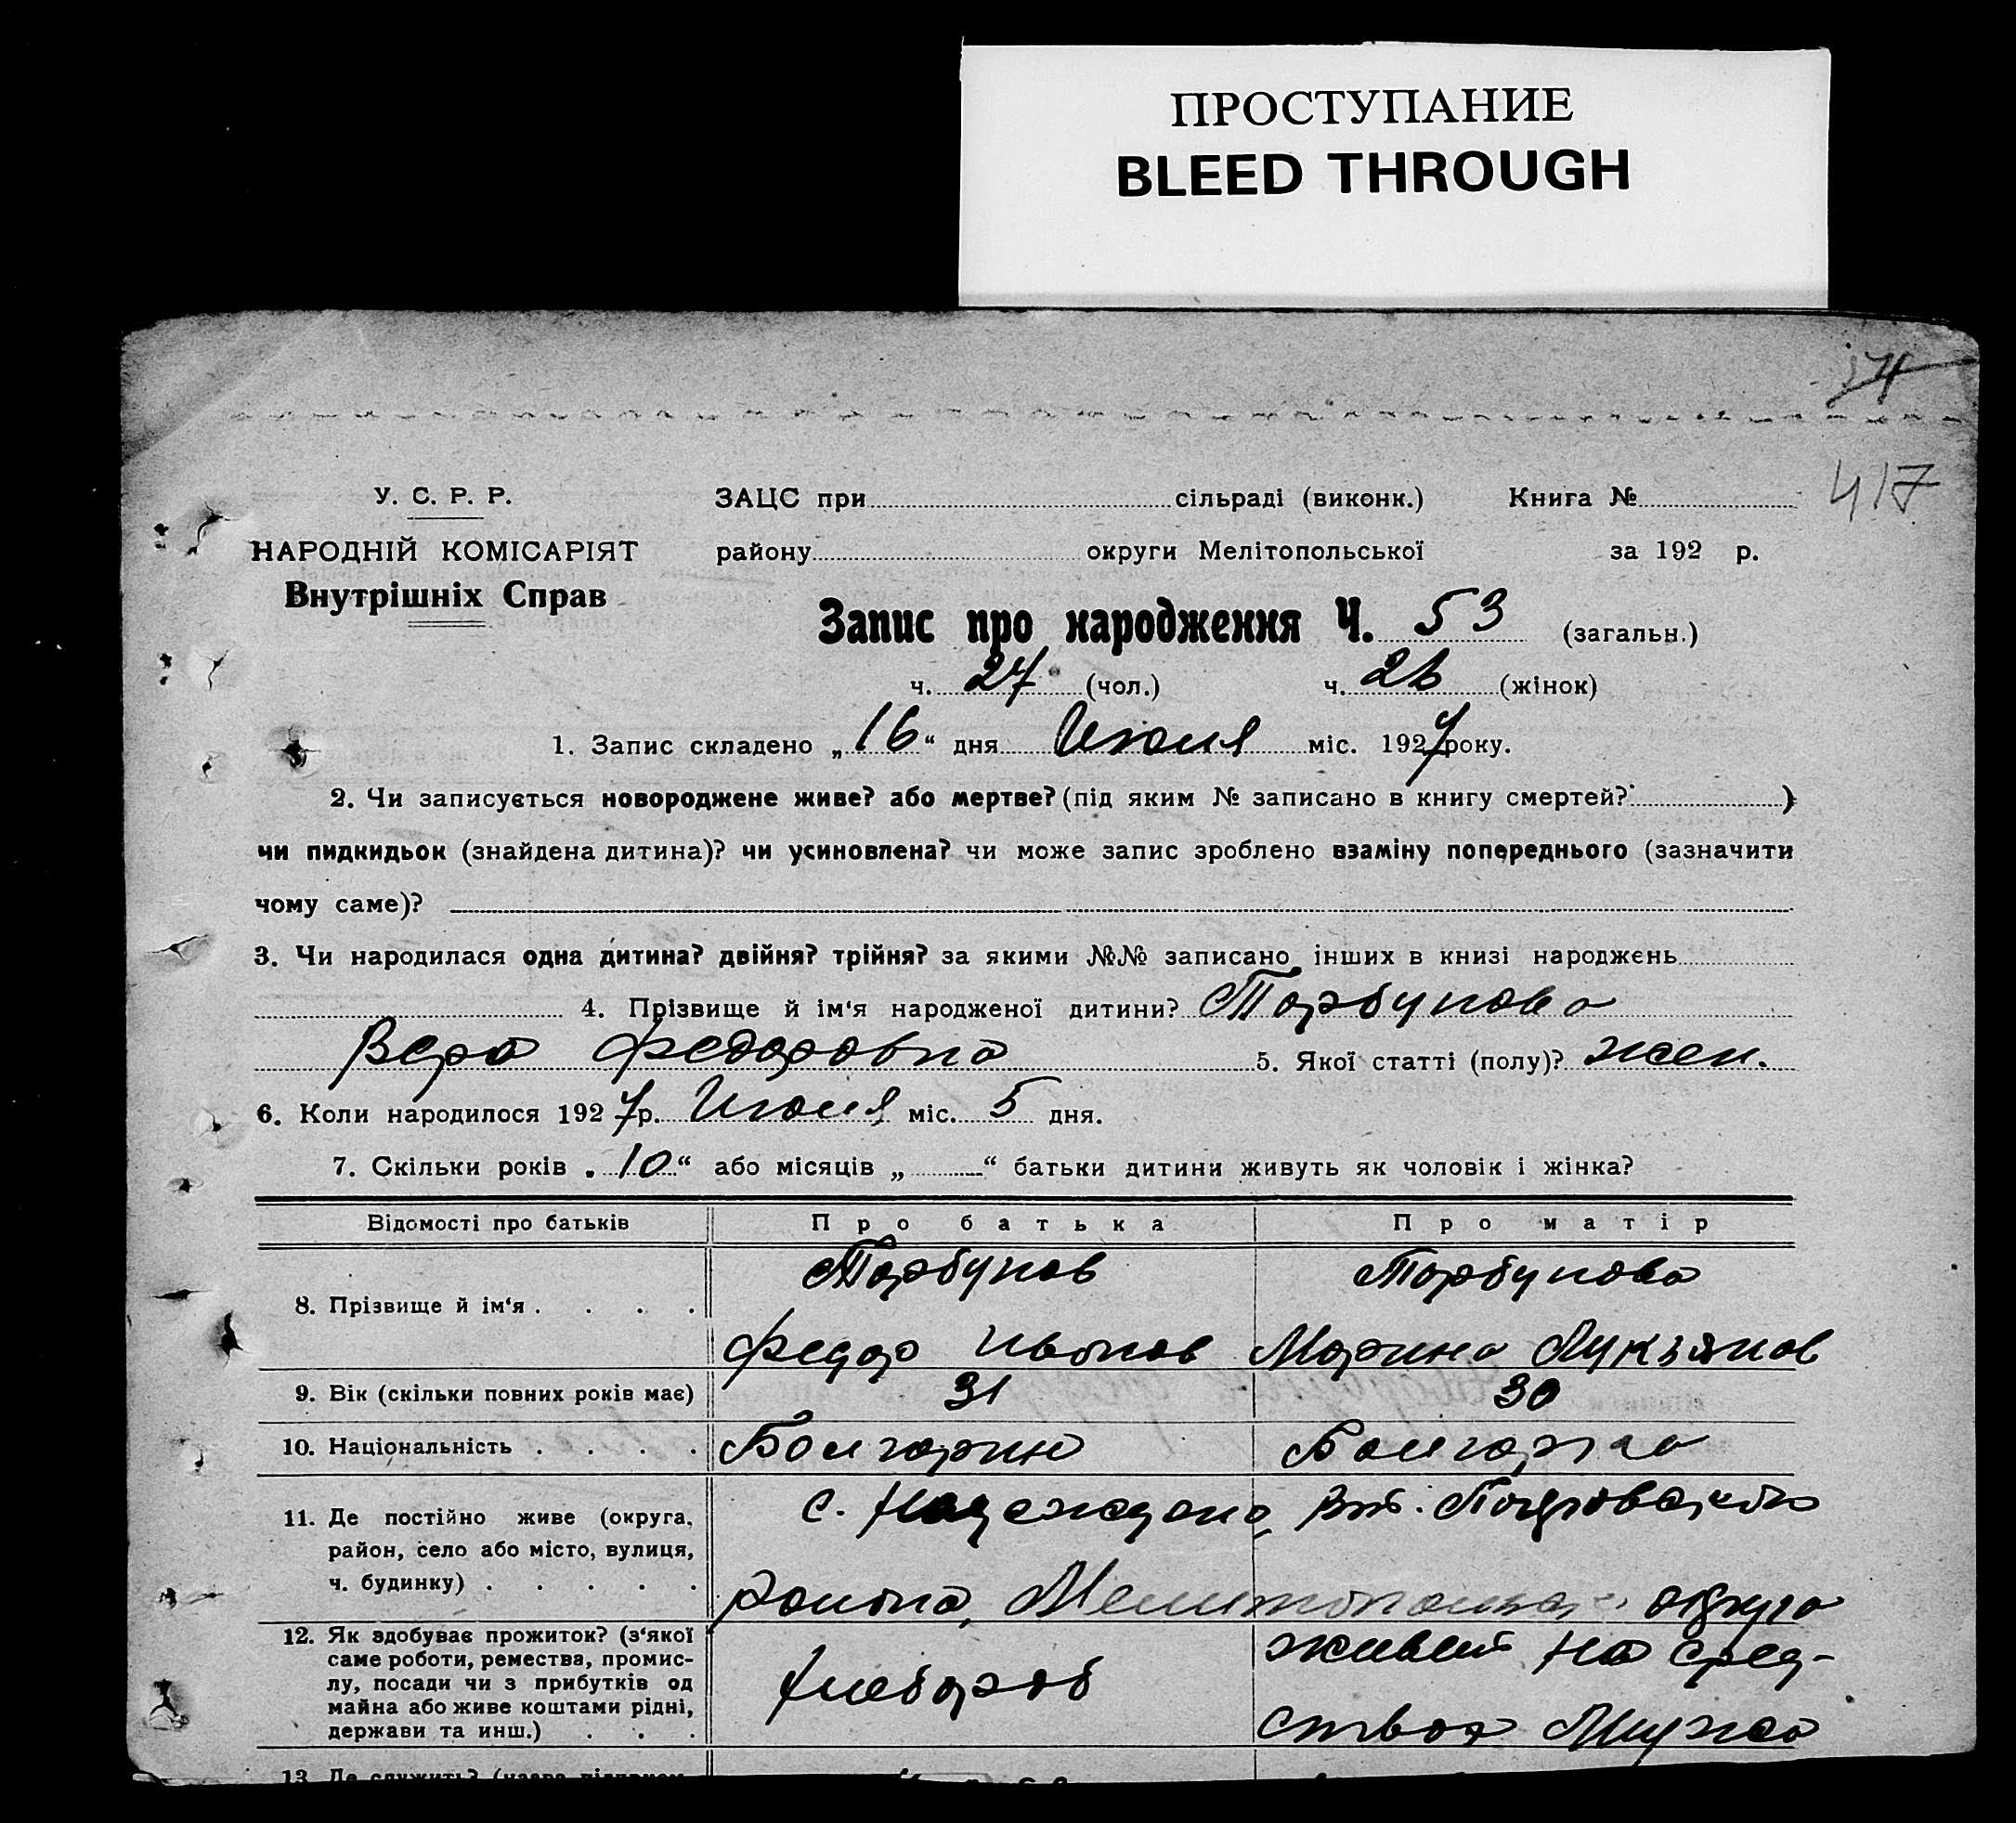 ПРОСТУПАНИЕ
BLEED THROUGH
417
У. С. Р. Р.
НАРОДНІЙ КОМІСАРІЯТ
Внутрішніх Справ
ЗАЦС при сільраді (виконк.) Книга №
району округи Мелітопольської за 192 р.
Запис про народження Ч. 53 (загальн.)
ч. 27 (чол.) ч. 26 (жінок)
1. Запис складено „16“ дня Июля міс. 1927 року.
2. Чи записується новороджене живе? або мертве? (під яким № записано в книгу смертей? )
чи пидкидьок (знайдена дитина)? чи усиновлена? чи може запис зроблено взаміну попереднього (зазначити
чому саме)?
3. Чи народилася одна дитина? двійня? трійня? за якими №№ записано інших в книзі народжень
4. Прізвище й ім‘я народженої дитини? Торбунова
Вера Федоровна 5. Якої статті (полу)? жен.
6. Коли народилося 1927 р. Июля міс. 5 дня.
7. Скільки років „10“ або місяців „ “ батьки дитини живуть як чоловік і жінка?
Відомості про батьків Про батька Про матір
8. Прізвище й ім‘я . . . . Торбунов Торбунова
Федор Иванов Марина Лукъянов
9. Вік (скільки повних років має) 31 30
10. Національність . . . . Болгарин Болгарка
11. Де постійно живе (округа, район, село або місто, вулиця, ч. будинку) . . . . . с. Надеждино,
района, Мелитопольск. округа
12. Як здобуває прожиток? (з‘якої саме роботи, ремества, промислу, посади чи з прибутків од майна або живе коштами рідні, держави та инш.) . . . Хлебороб живет на сред-
ствах Мужа